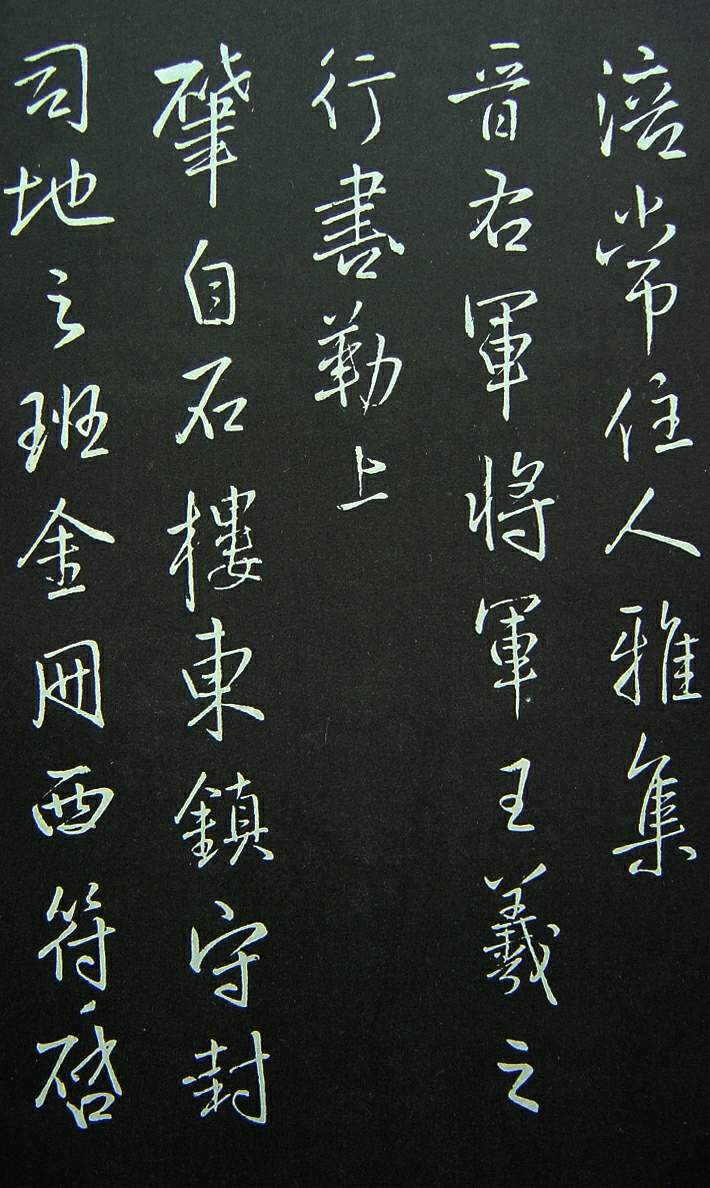 涪常住人雅集
晉右軍將軍王羲之
行書勒上
肇自石樓東鎮守封
司地之班金冊西符啓